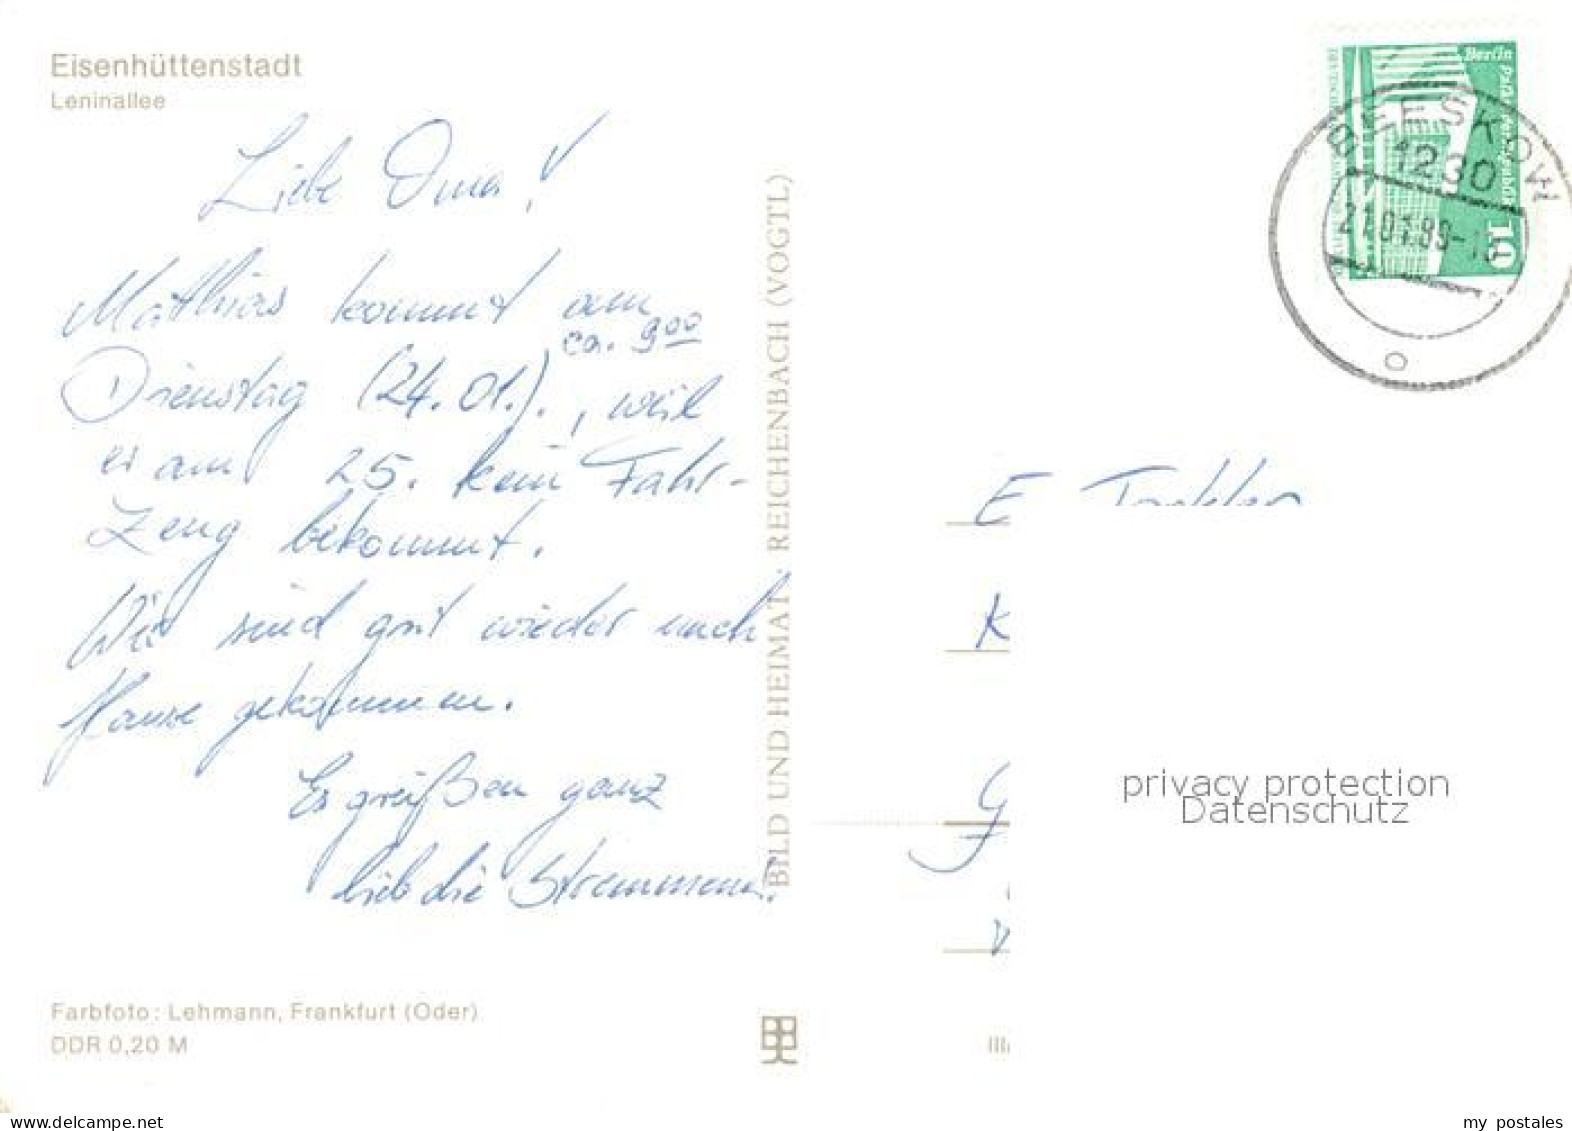 Eisenhüttenstadt
Leninallee
Liebe Oma!
Matthias kommt am
Dienstag (24.01.). ca. 9⁰⁰, weil
er am 25. kein Fahr-
zeug bekommt.
Wir sind gut wieder nach
Hause gekommen.
Es grüßen ganz
lieb die Stremmener.
Farbfoto: Lehmann, Frankfurt (Oder)
DDR 0,20 M
BILD UND HEIMAT · REICHENBACH (VOGTL)
Berlin Palast der Republik
10
BEESKOW
1230
21.01.89-
E
K
G
privacy protection
Datenschutz
my postales